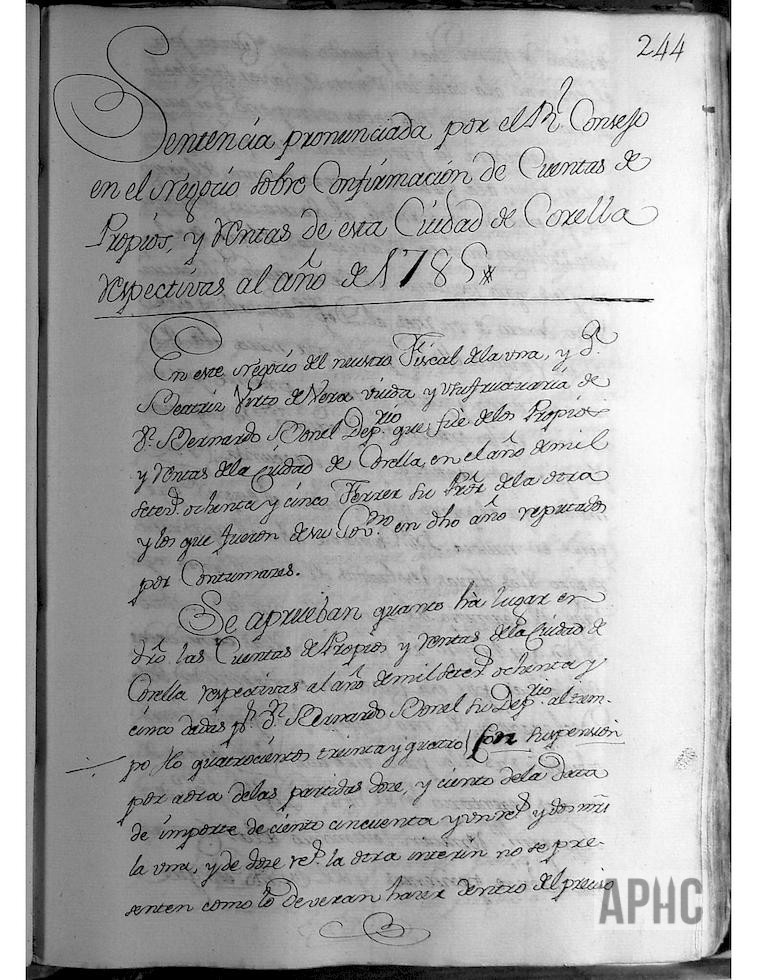 244
Sentencia pronunciada por el Rl. Consejo
en el Negocio sobre Confirmación de Cuentas de
Propios, y Rentas de esta Ciudad de Corella
respectivas al año de 1785*
En este Negocio del nuestro Fiscal de la una, y Da.
Beatriz Virto de Vera viuda y Usufructuaria de
Dn. Bernardo Bonel Deprio. que fue de los Propios
y Rentas de la Ciudad de Corella, en el año de mil
seteps. ochenta y cinco Ferrer su Pror. de la otra
y los que fueron de su Govno. en dho año reputados
por Contumazes.
Se aprueban quanto há lugar en
dro. las Cuentas de Propios y rentas de la Ciudad de
Corella respectivas al año de mil sets. ochenta y
cinco dadas pr. Dn. Bernardo Bonel su Deprio. al tem-
po flo quatrocientos treinta y quatro / Con suspensión
por aora de las partidas doze, y ciento de la Data
de importe de ciento cincuenta y un rs. y dos mrs
la una, y de doze rs. la otra interin no se pre-
senten como lo deveran hazer dentro del preciso
APHC